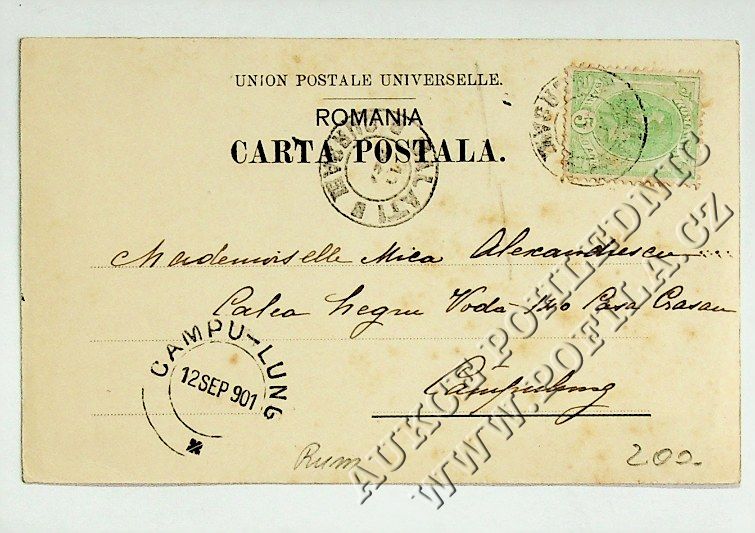 UNION POSTALE UNIVERSELLE.
ROMANIA
CARTA POSTALA.
GALATI
5
Mademoiselle Mica Alexandrescu
Calea Negru Vodă Casa Crasan
Câmpulung
CAMPU-LUNG
12 SEP 901
Rum
200.-
AUKCE POHLEDNIC
WWW.POETLA.CZ